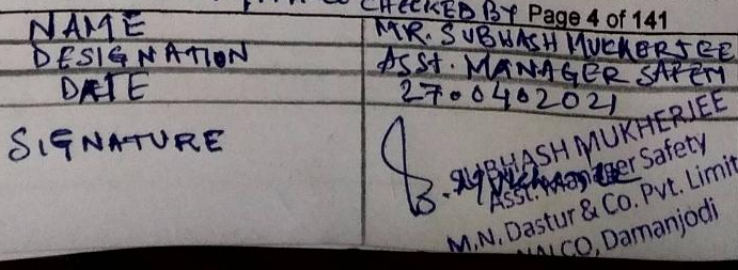 CHECKED BY Page 4 of 141
NAME MR. SUBHASH MUKHERJEE
DESIGNATION ASST. MANAGER SAFETY
DATE 27.04.2021
SIGNATURE
SUBHASH MUKHERJEE
Asst. Manager Safety
M.N. Dastur & Co. Pvt. Limit
NALCO, Damanjodi